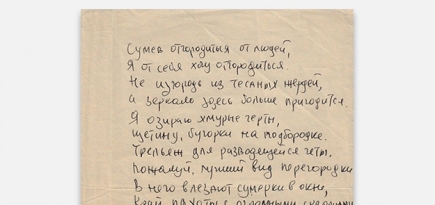 Сумев отгородиться от людей,
Я от себя хочу отгородиться.
Не изгородь из тесаных жердей,
а зеркало здесь больше пригодится.
Я озираю хмурые черты,
щетину, бугорки на подбородке.
Трельяж для разводящейся четы,
пожалуй, лучший вид перегородки.
В него влезают сумерки в окне,
край пахоты с огромными скворцами